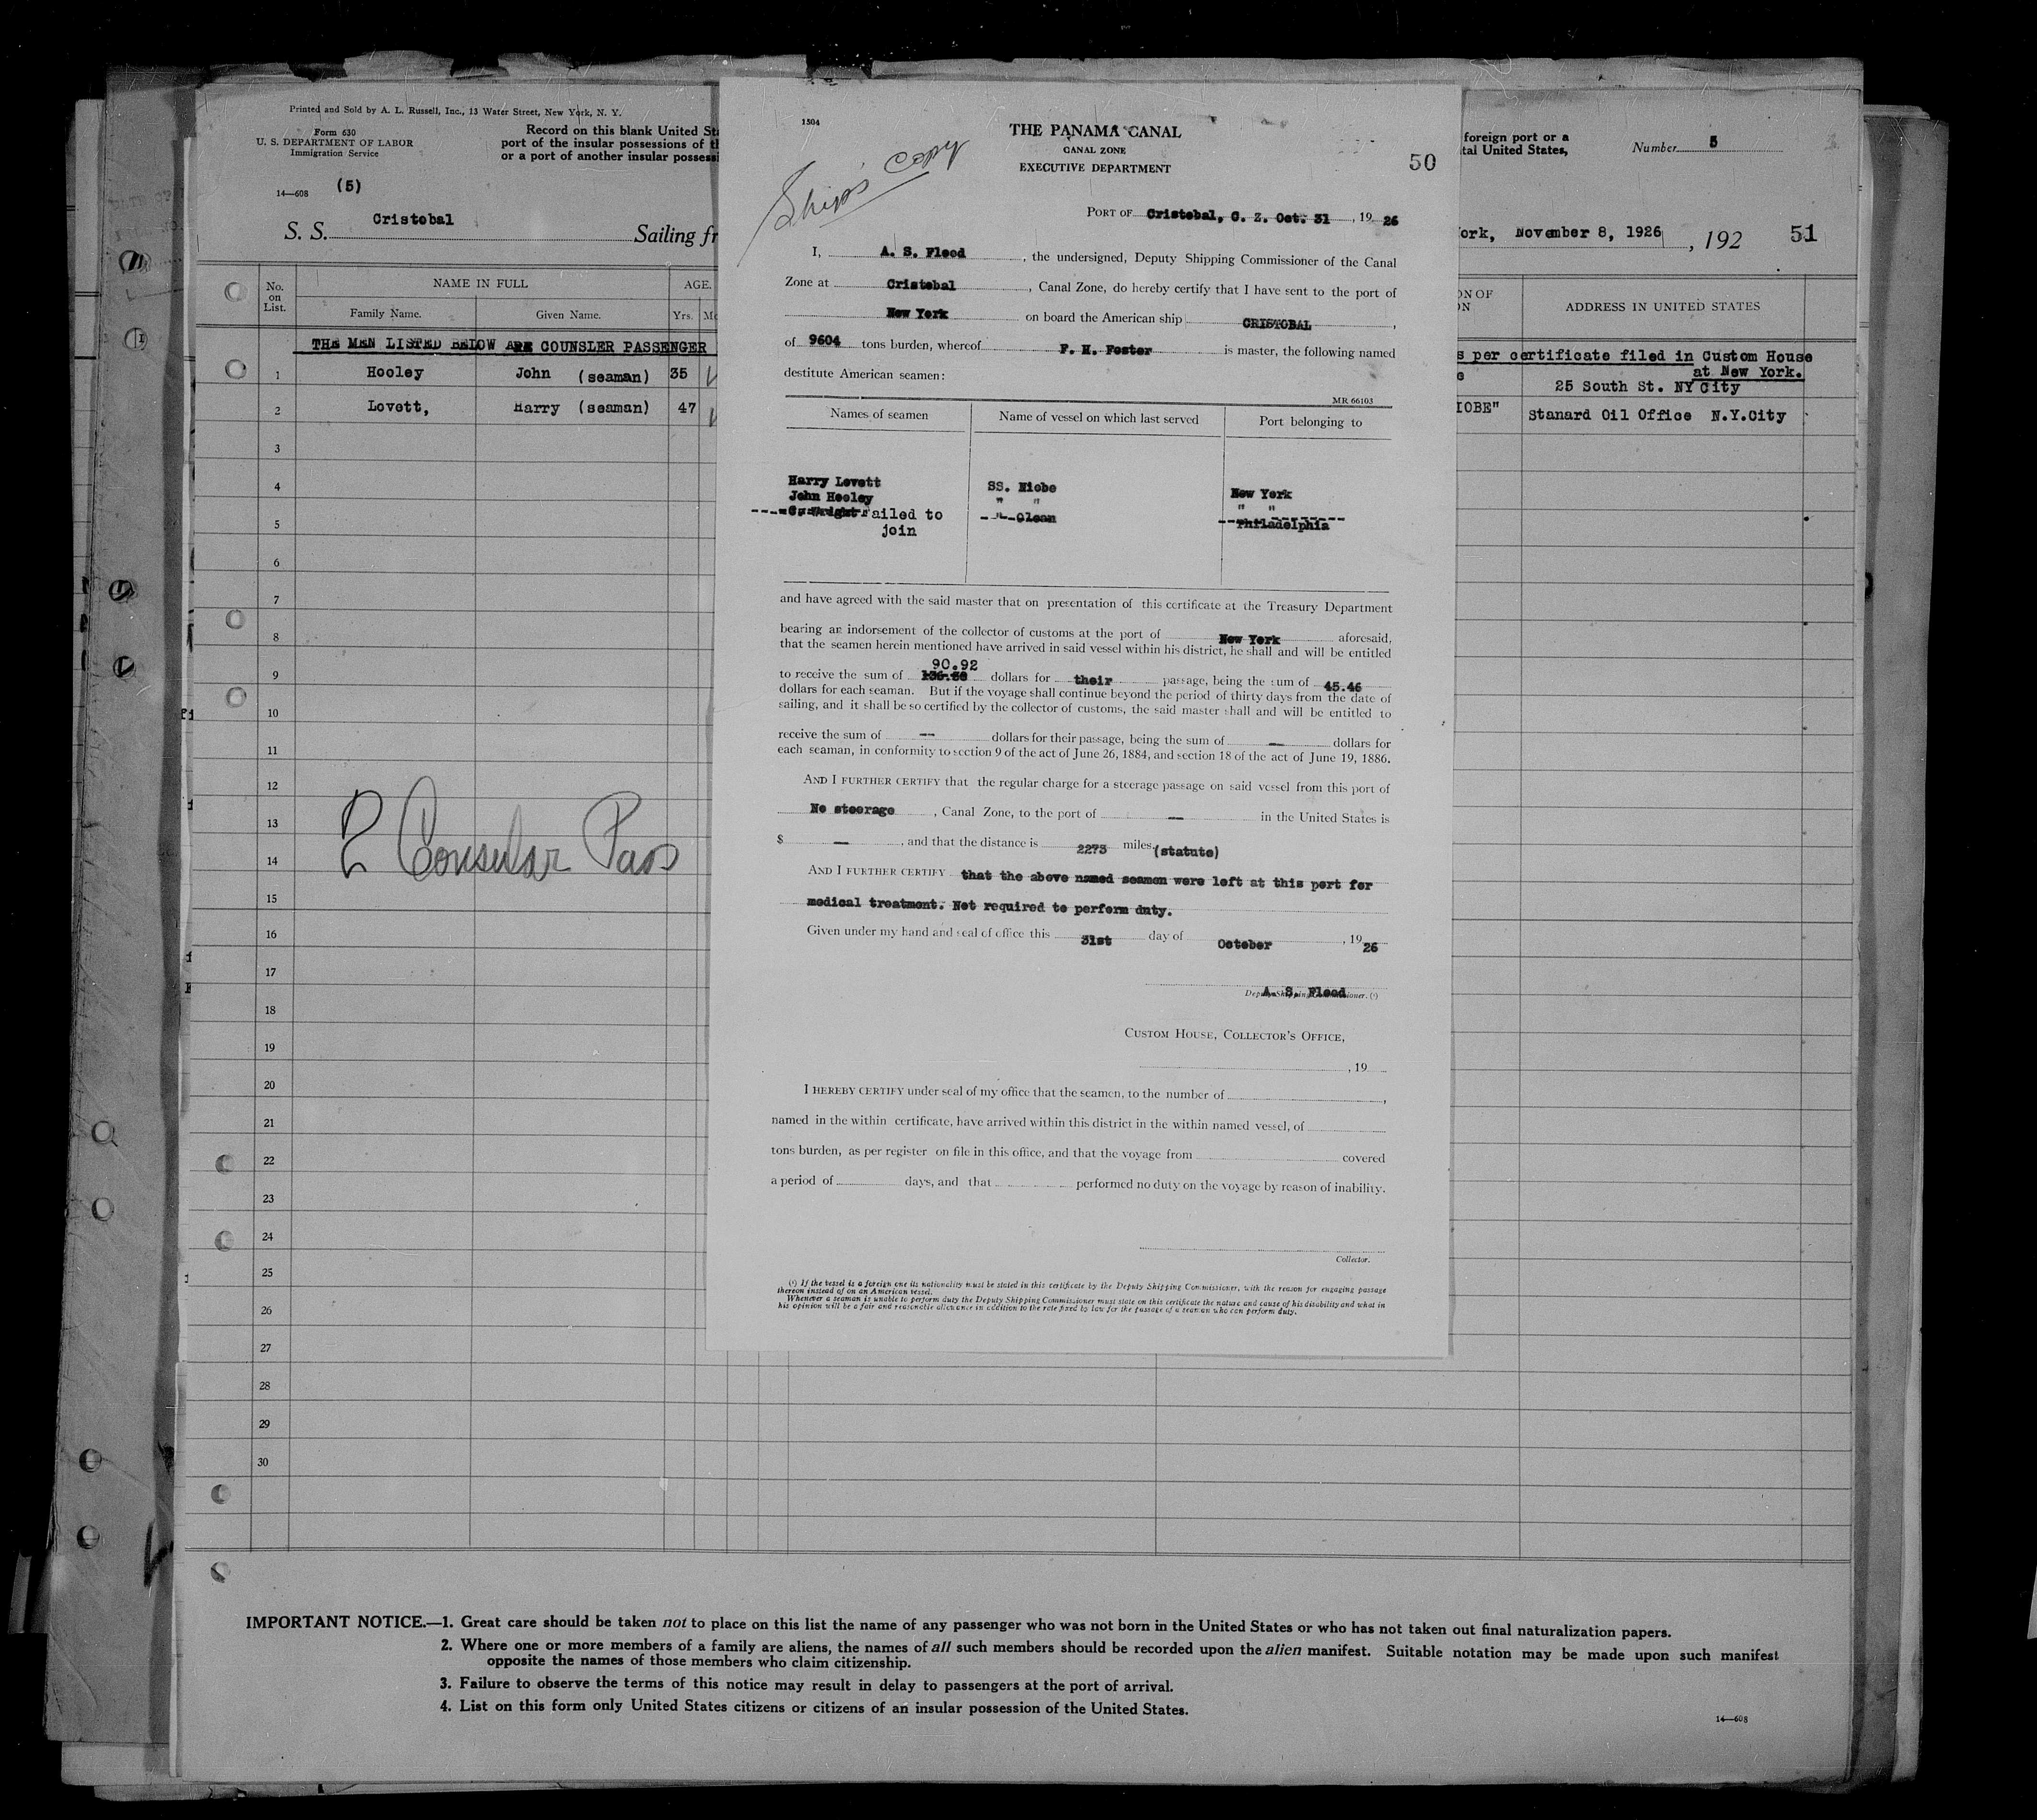 Printed and Sold by A. L. Russell, Inc., 13 Water Street, New York, N. Y.
Form 630
U. S. DEPARTMENT OF LABOR
Immigration Service
14—608
(5)
Record on this blank United Sta
port of the insular possessions of th
or a port of another insular possessi
S. S. Cristobal Sailing fr
No. on List.
NAME IN FULL
AGE.
Family Name.
Given Name.
Yrs.
THE MEN LISTED BELOW ARE COUNSLER PASSENGER
1 Hooley John (seaman) 35
2 Lovett, Harry (seaman) 47
3
4
5
6
7
8
9
10
11
12
13
14
15
16
17
18
19
20
21
22
23
24
25
26
27
28
29
30
2 Consular Pass
1504
Ship's Copy
THE PANAMA CANAL
CANAL ZONE
EXECUTIVE DEPARTMENT
50
PORT OF Cristobal, C. Z. Oct. 31, 19 26
I, A. S. Flood, the undersigned, Deputy Shipping Commissioner of the Canal
Zone at Cristobal, Canal Zone, do hereby certify that I have sent to the port of
New York on board the American ship CRISTOBAL,
of 9604 tons burden, whereof F. H. Foster is master, the following named
destitute American seamen:
MR 66103
Names of seamen
Name of vessel on which last served
Port belonging to
Harry Lovett SS. Niobe New York
John Hooley " " " "
Wright Failed to join " Olean Philadelphia
and have agreed with the said master that on presentation of this certificate at the Treasury Department
bearing an indorsement of the collector of customs at the port of New York aforesaid,
that the seamen herein mentioned have arrived in said vessel within his district, he shall and will be entitled
90.92
to receive the sum of dollars for their passage, being the sum of 45.46
dollars for each seaman. But if the voyage shall continue beyond the period of thirty days from the date of
sailing, and it shall be so certified by the collector of customs, the said master shall and will be entitled to
receive the sum of — dollars for their passage, being the sum of — dollars for
each seaman, in conformity to section 9 of the act of June 26, 1884, and section 18 of the act of June 19, 1886.
AND I FURTHER CERTIFY that the regular charge for a steerage passage on said vessel from this port of
No steerage, Canal Zone, to the port of — in the United States is
$ —, and that the distance is 2273 miles.(statute)
AND I FURTHER CERTIFY that the above named seamen were left at this port for
medical treatment. Not required to perform duty.
Given under my hand and seal of office this 31st day of October, 19 26
A. S. Flood
Deputy Shipping Commissioner. (¹)
CUSTOM HOUSE, COLLECTOR'S OFFICE,
, 19
I HEREBY CERTIFY under seal of my office that the seamen, to the number of ,
named in the within certificate, have arrived within this district in the within named vessel, of
tons burden, as per register on file in this office, and that the voyage from covered
a period of days, and that performed no duty on the voyage by reason of inability.
Collector.
(¹) If the vessel is a foreign one its nationality must be stated in this certificate by the Deputy Shipping Commissioner, with the reason for engaging passage
thereon instead of on an American vessel.
Whenever a seaman is unable to perform duty the Deputy Shipping Commissioner must state on this certificate the nature and cause of his disability and what in
his opinion will be a fair and reasonable allowance in addition to the rate fixed by law for the passage of a seaman who can perform duty.
foreign port or a
tal United States,
Number 5
ork, November 8, 1926, 192
51
ON OF
ON
ADDRESS IN UNITED STATES
s per certificate filed in Custom House
at New York.
25 South St. NY City
IOBE" Stanard Oil Office N.Y.City
IMPORTANT NOTICE.—1. Great care should be taken not to place on this list the name of any passenger who was not born in the United States or who has not taken out final naturalization papers.
2. Where one or more members of a family are aliens, the names of all such members should be recorded upon the alien manifest. Suitable notation may be made upon such manifest
opposite the names of those members who claim citizenship.
3. Failure to observe the terms of this notice may result in delay to passengers at the port of arrival.
4. List on this form only United States citizens or citizens of an insular possession of the United States.
14—608